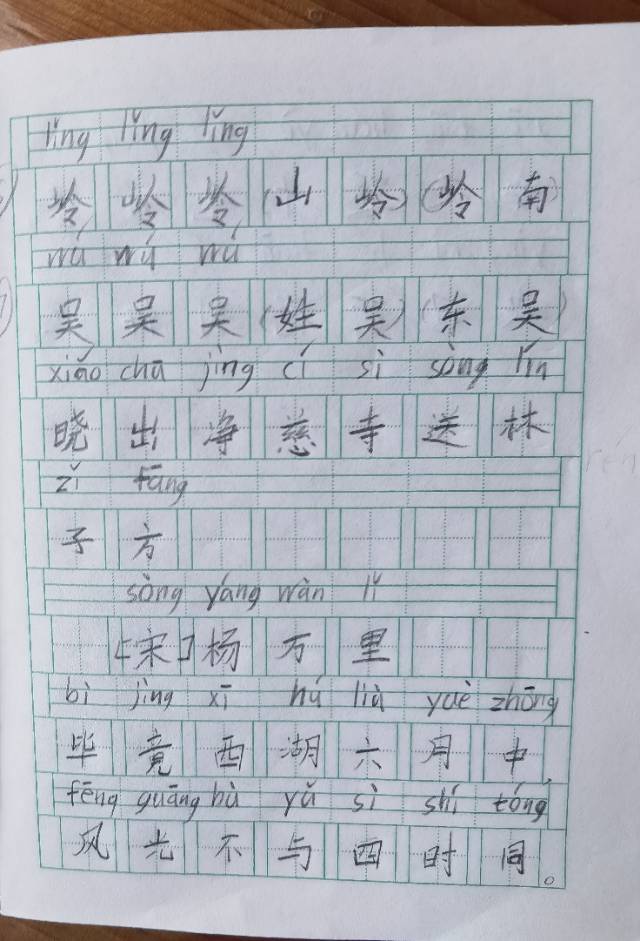 lǐng lǐng lǐng
岭 岭 岭 (山 岭) (岭 南)
wú wú wú
吴 吴 吴 (姓 吴) (东 吴)
xiǎo chū jìng cí sì sòng lín
晓 出 净 慈 寺 送 林
zǐ fāng
子 方
sòng yáng wàn lǐ
[宋] 杨 万 里
bì jìng xī hú liù yuè zhōng
毕 竟 西 湖 六 月 中
fēng guāng bù yǔ sì shí tóng
风 光 不 与 四 时 同。